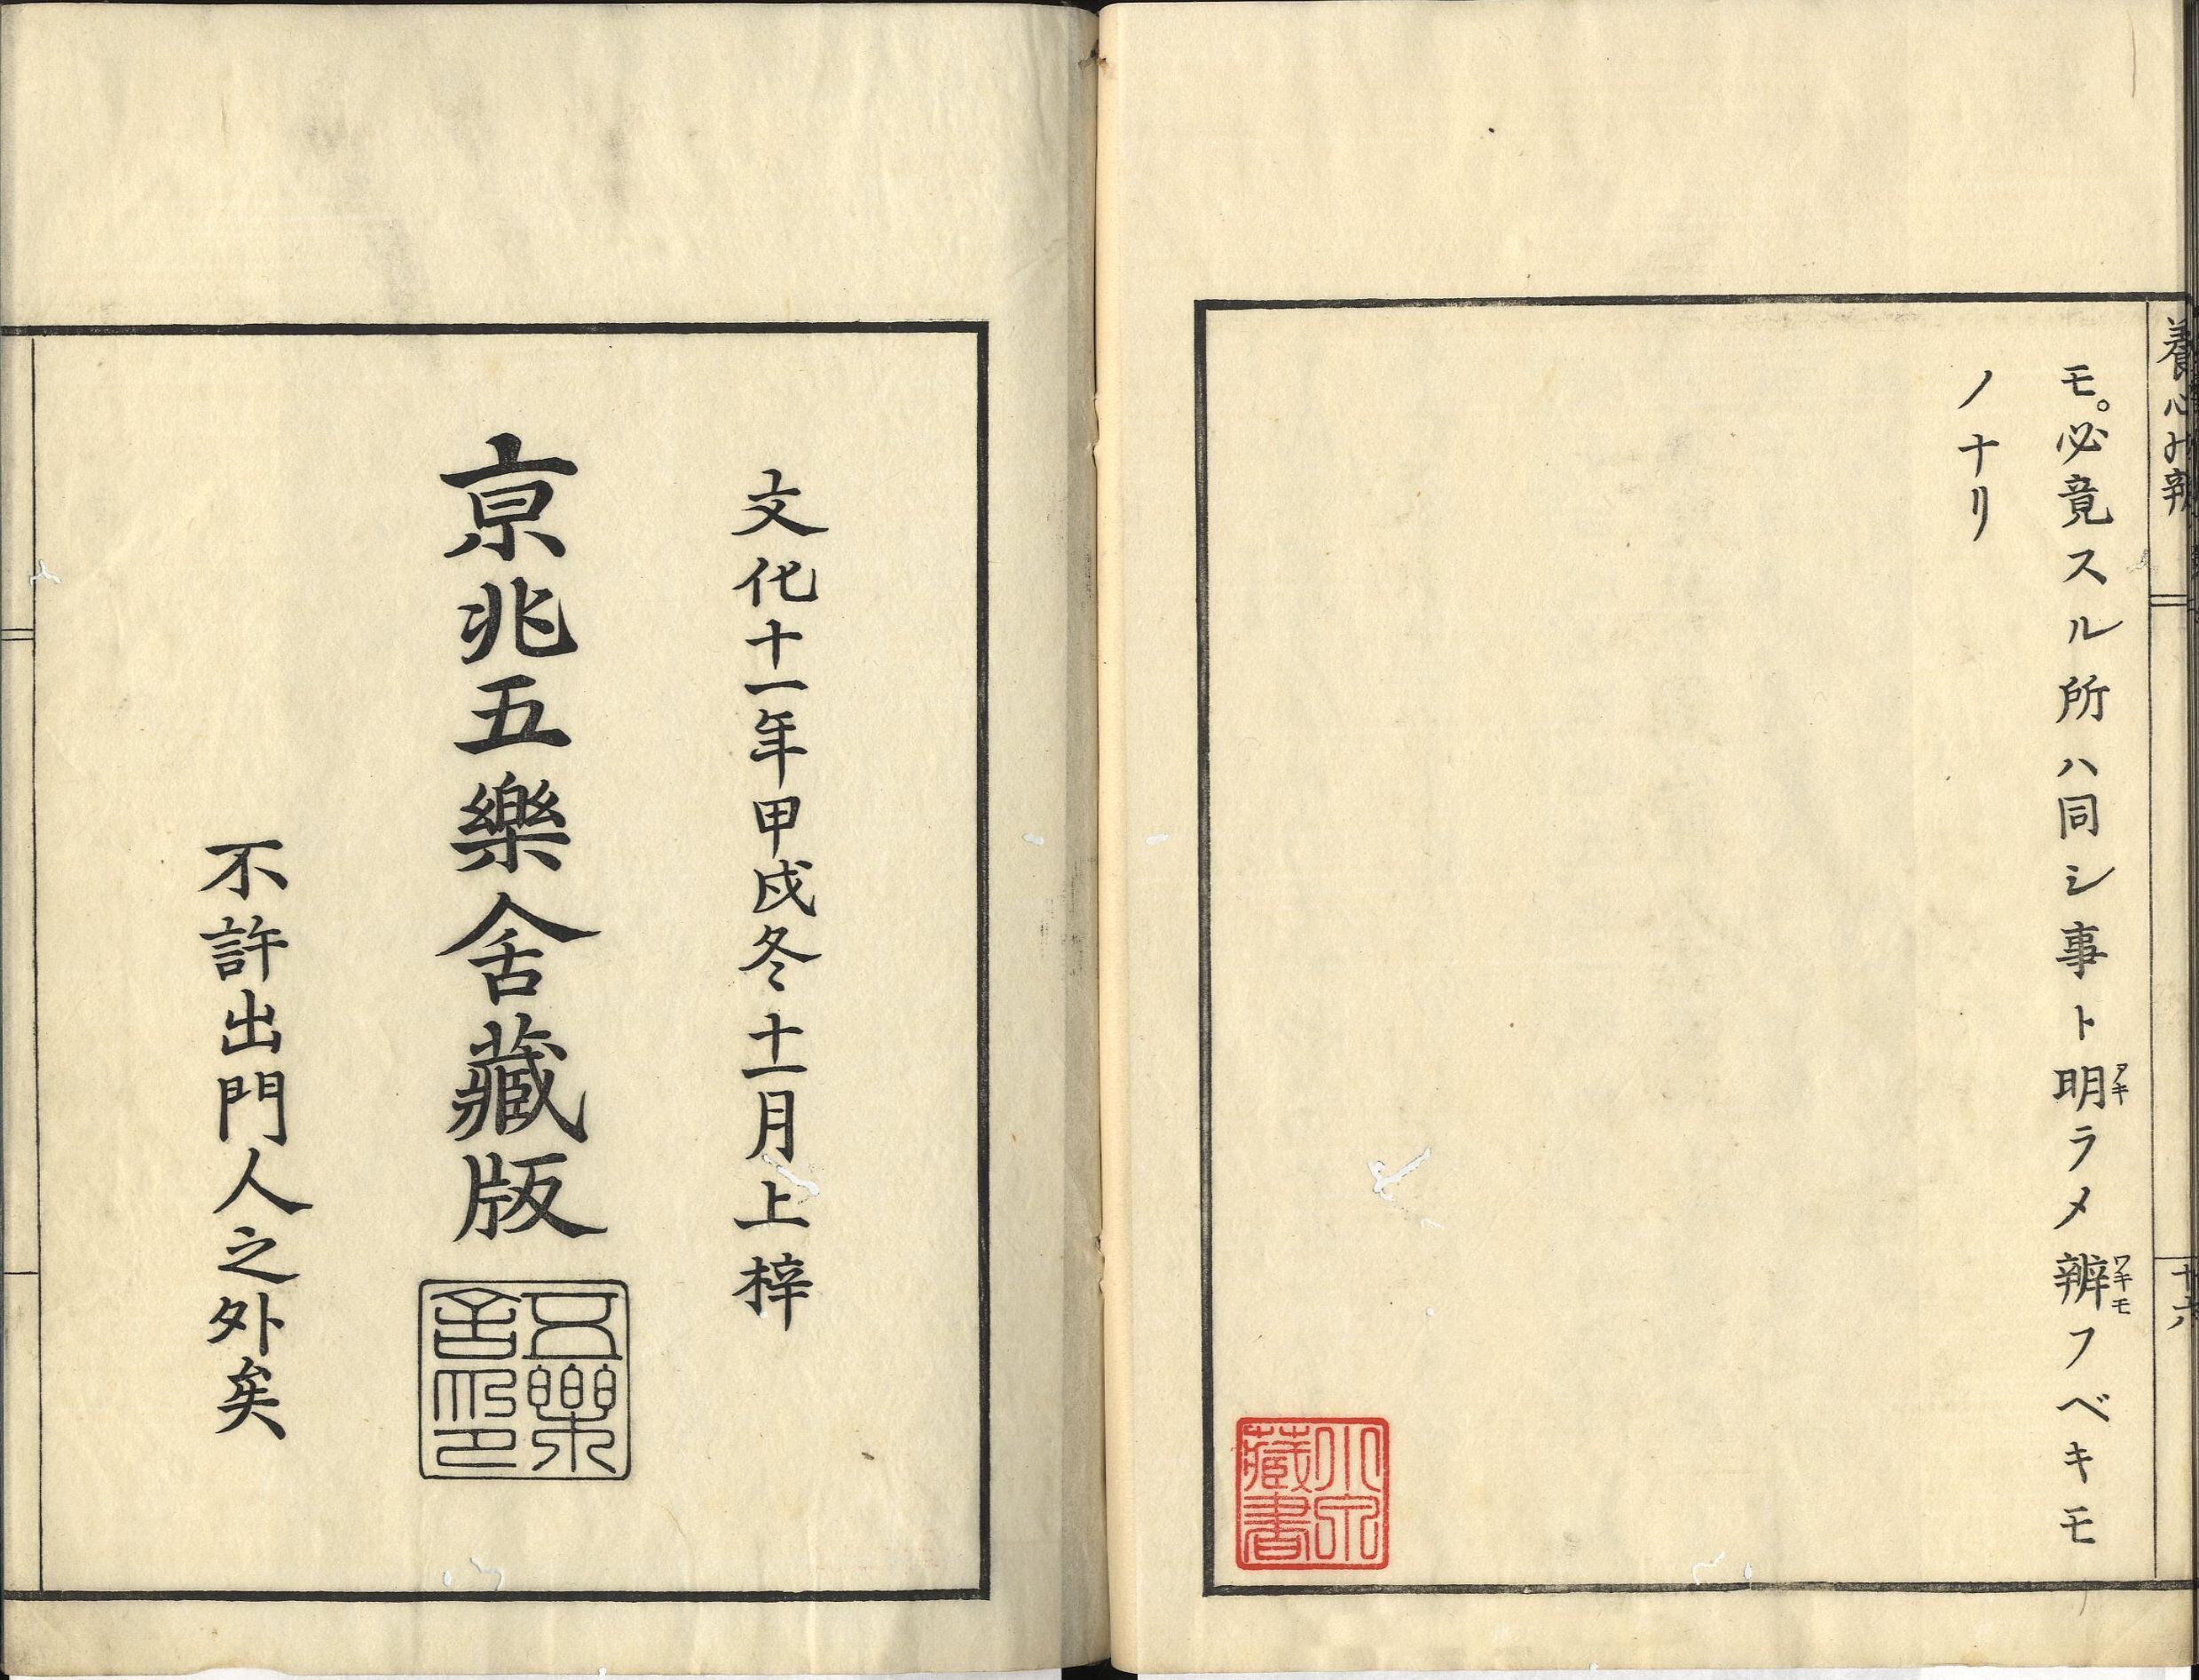 モ。必竟スル所ハ同シ事ト明ラメ辨フベキモ
アキ
ワキモ
ノナリ
小泉藏書
文化十一年甲戌冬十一月上梓
亰兆五樂舍藏版
五樂舍印
不許出門人之外矣